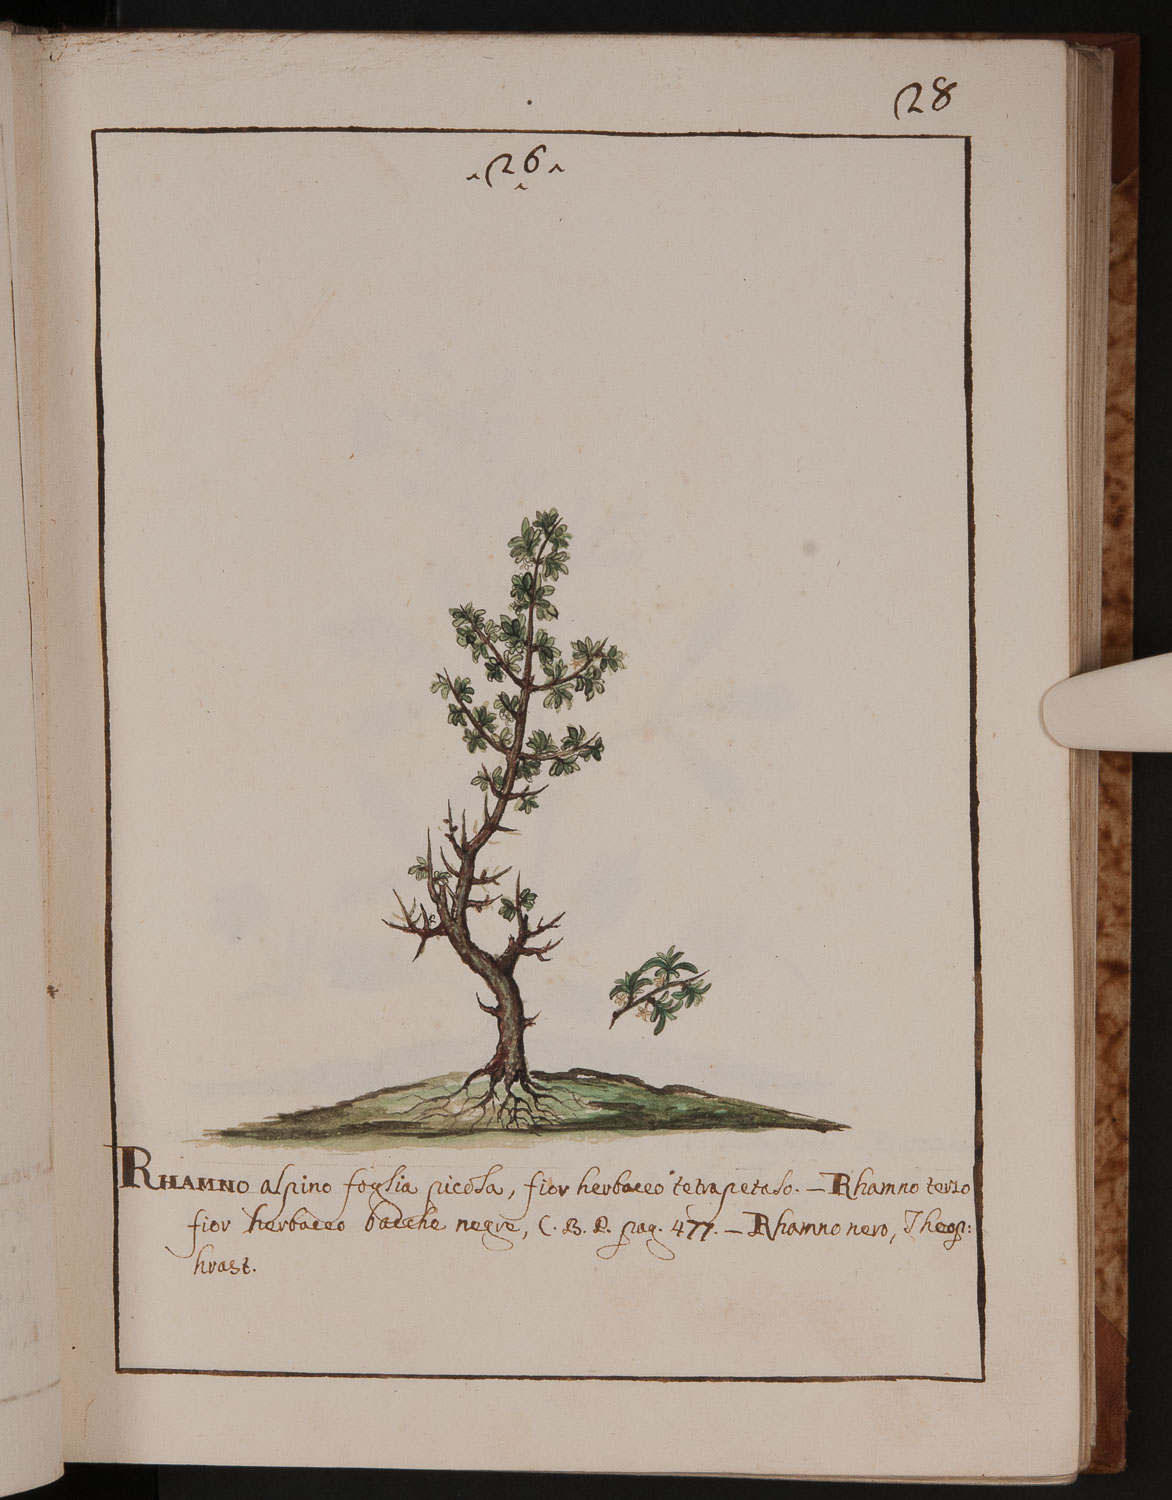 28
26
RHAMNO alpino foglia picola, fior herbaceo tetrapetalo. — Rhamno terzo
fior herbaceo bacche negre, C. B. P. pag. 477. — Rhamno nero, Theop:
hrast.